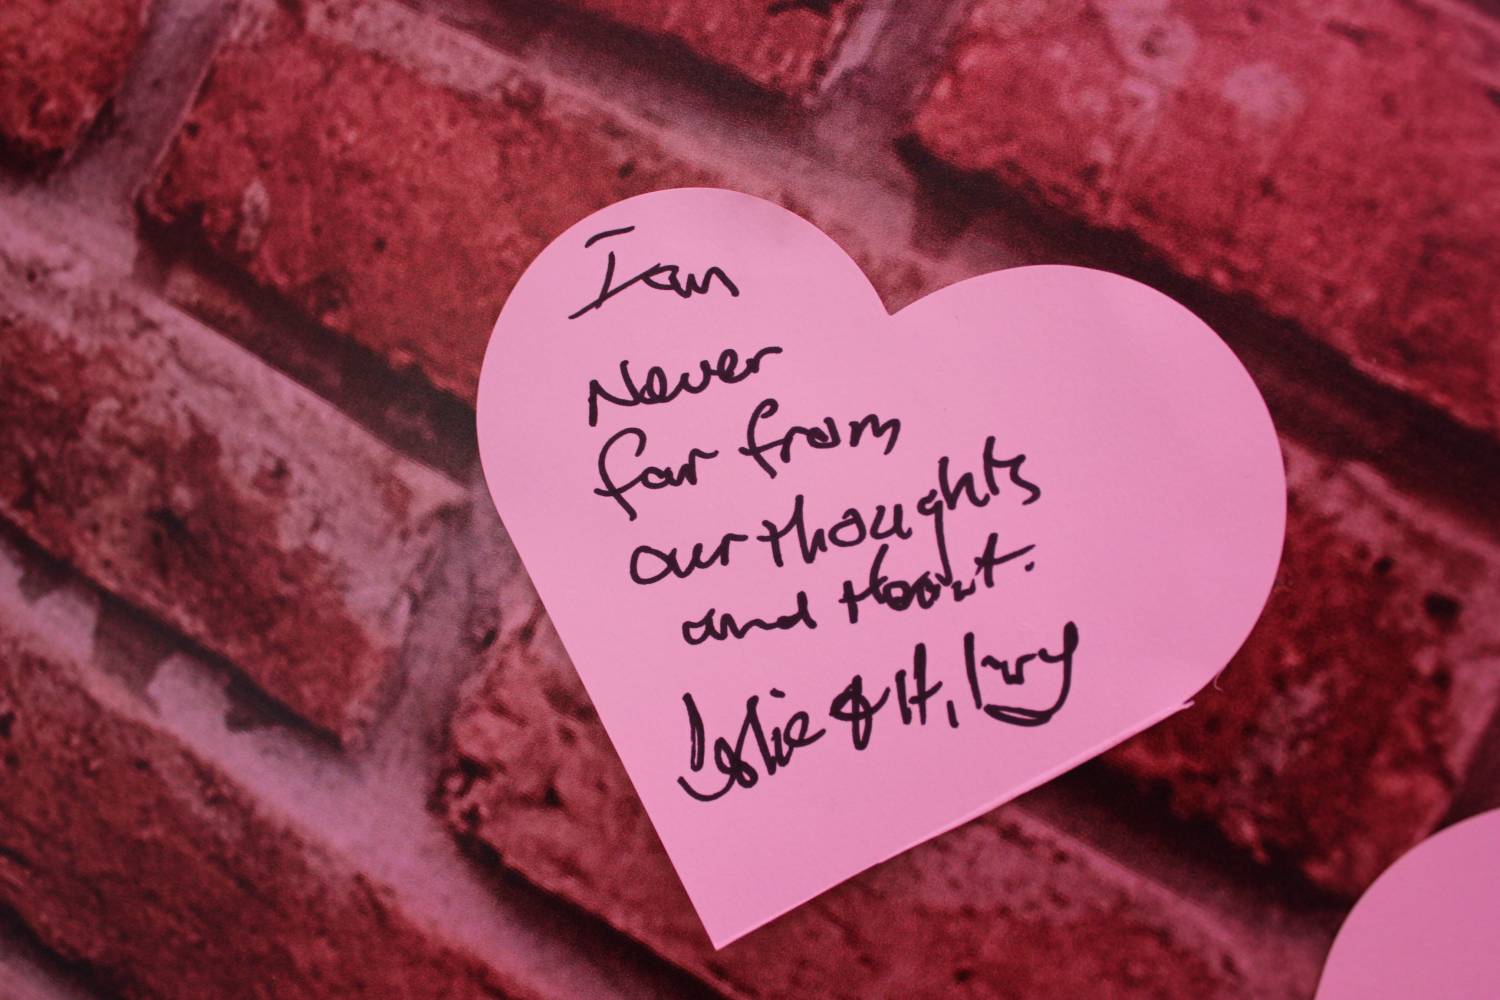 Ian
Never
far from
our thoughts
and Heart.
Leslie & Hilary